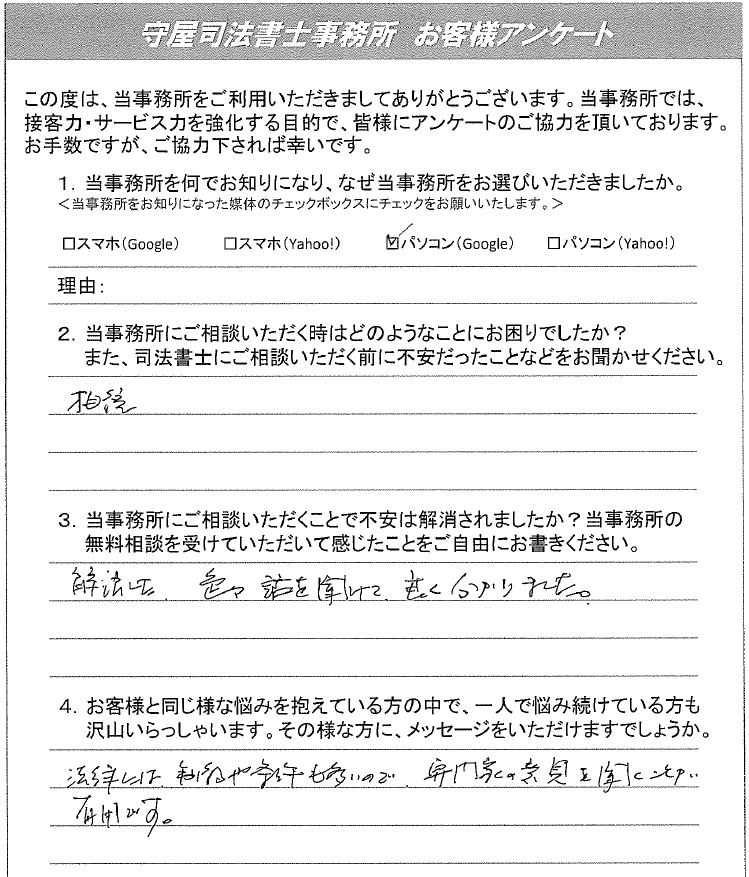 守屋司法書士事務所 お客様アンケート
この度は、当事務所をご利用いただきましてありがとうございます。当事務所では、
接客力・サービス力を強化する目的で、皆様にアンケートのご協力を頂いております。
お手数ですが、ご協力下されば幸いです。
1．当事務所を何でお知りになり、なぜ当事務所をお選びいただきましたか。
＜当事務所をお知りになった媒体のチェックボックスにチェックをお願いいたします。＞
□スマホ(Google) □スマホ(Yahoo!) ☑パソコン(Google) □パソコン(Yahoo!)
理由：
2．当事務所にご相談いただく時はどのようなことにお困りでしたか？
また、司法書士にご相談いただく前に不安だったことなどをお聞かせください。
相続
3．当事務所にご相談いただくことで不安は解消されましたか？当事務所の
無料相談を受けていただいて感じたことをご自由にお書きください。
色々話を聞けて良く分かりました。
4．お客様と同じ様な悩みを抱えている方の中で、一人で悩み続けている方も
沢山いらっしゃいます。その様な方に、メッセージをいただけますでしょうか。
法律には も多いので、専門家の意見を聞くことが
有用です。